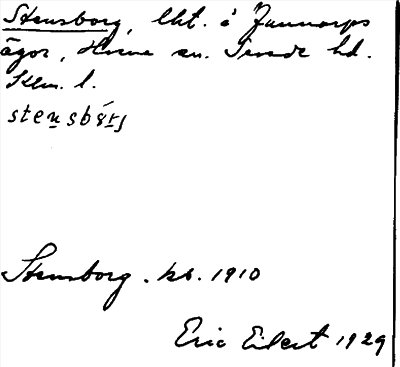 Stensborg, lht. å Jannorps
ägor, Horns sn. Tevede hd.
Klm. l.
stensbårj
Stensborg. kb. 1910
Eric Eilert 1929